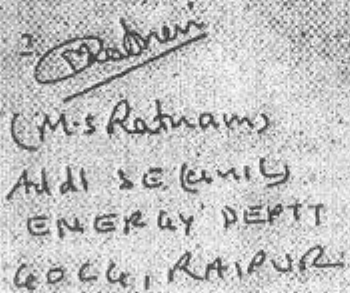 2
MRatnam
(M.S Ratnam)
Addl SE (Civil)
ENERGY DEPTT
GOCG, RAIPUR